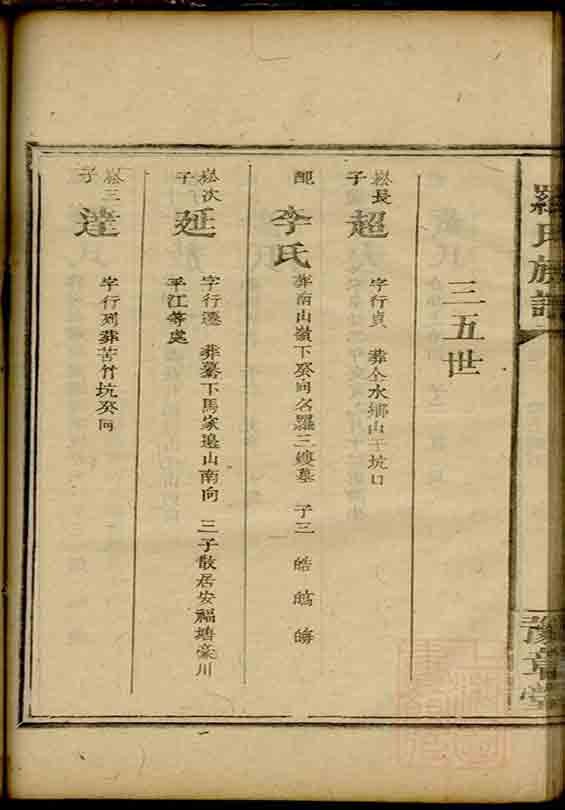 羅氏族譜
豫章堂
三五世
崧長子 超 字行貞 葬全水鄉山下坑口
配 李氏 葬南山嶺下癸向名羅三嫂墓 子三 皓 皜 皞
崧次子 延 字行遷 葬藔下馬家邊山南向 三子散居安福塘豪川
平江等處
崧三子 達 字行列葬苦竹坑癸向